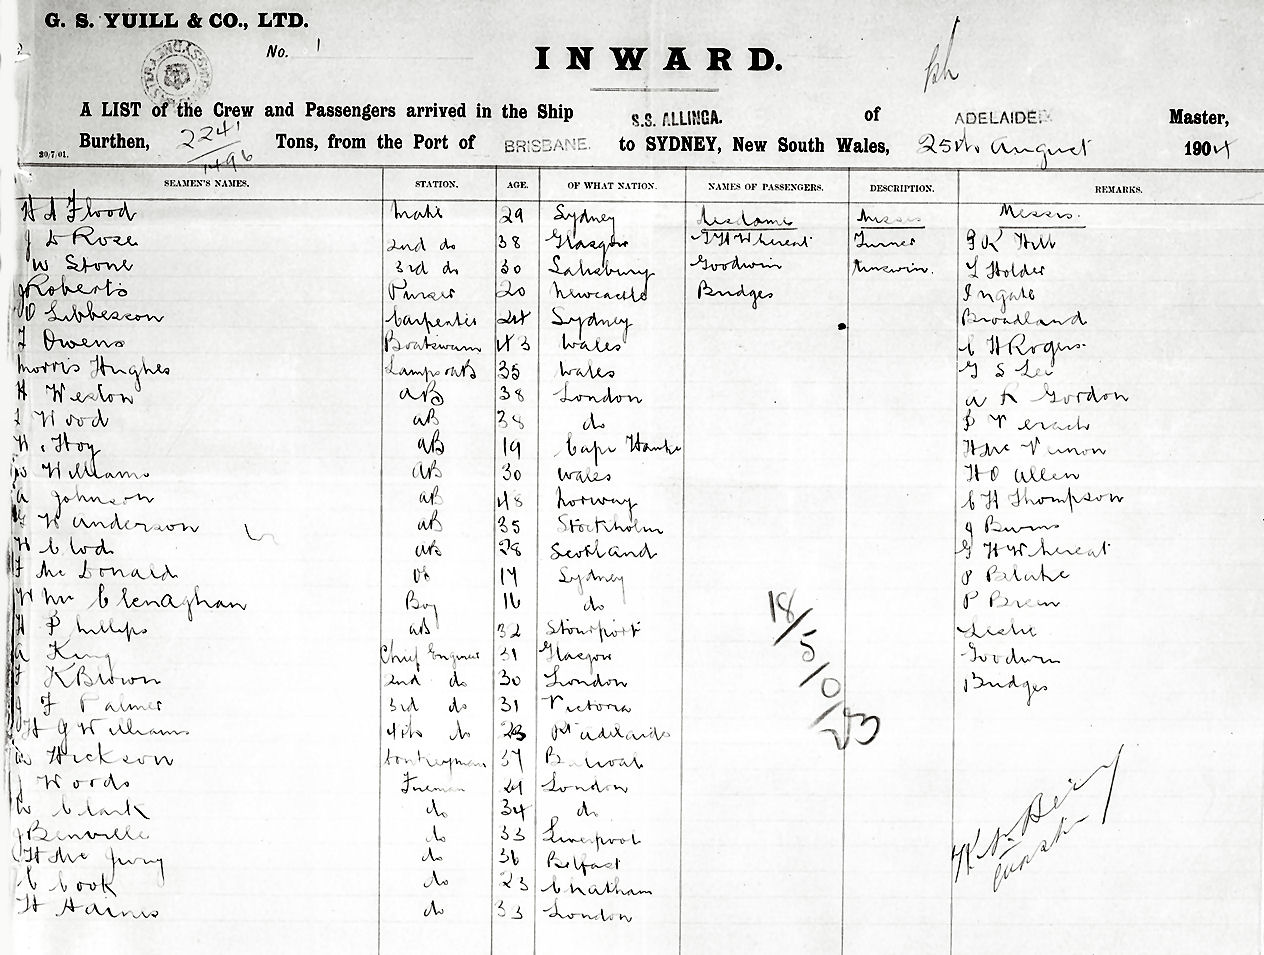 G. S. YUILL & CO., LTD.
No. 1
INWARD.
A LIST of the Crew and Passengers arrived in the Ship S.S. ALLINGA. of ADELAIDE Master,
Burthen, 2241 Tons, from the Port of BRISBANE. to SYDNEY, New South Wales, 25th August 1904
1496
30/7/01.
SEAMEN'S NAMES. STATION. AGE. OF WHAT NATION. NAMES OF PASSENGERS. DESCRIPTION. REMARKS.
H A Flood Mate 29 Sydney Mesdames Misses Messrs.
J D Rose 2nd do 38 Glasgow G H Whereat Turner G K Hill
W Stone 3rd do 30 Salisbury Goodwin Unswin. L Holder
J Roberts Purser 20 Newcastle Bridges Ingate
O Libbesson Carpenter 24 Sydney Broadland
T Owens Boatswain 43 Wales C H Rogers
Morris Hughes Lamps &AB 35 Wales G S Lee
H Weston AB 38 London A R Gordon
Wood AB 38 do
Hoy AB 19 Cape Hawke Vernon
W Williams AB 30 Wales H O Allen
A Johnson AB 48 Norway C H Thompson
G W Anderson AB 35 Stockholm J Burns
H Clod AB 28 Scotland G H Whereat
F McDonald OS 17 Sydney P Blake
W McClenaghan Boy 16 do P Breen
H Phillips AB 32 Stourport Leslie
A King Chief Engineer 31 Glasgow Goodwin
F K Brown 2nd do 30 London Bridges
J F Palmer 3rd do 31 Victoria
H G Williams 4th do 23 Pt Adelaide
W Hickson Donkeyman 37
J Woods Fireman 24 London
W Clark do 34 do
J Benville do 33 Liverpool
H do 36 Belfast
C Cook do 23 Chatham
H Haines do 33 London
18/5/0/23